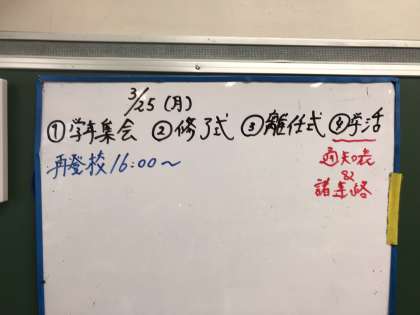 3/25(月)
①学年集会 ②修了式 ③離任式 ④学活
再登校16:00〜
通知表
&
諸連絡